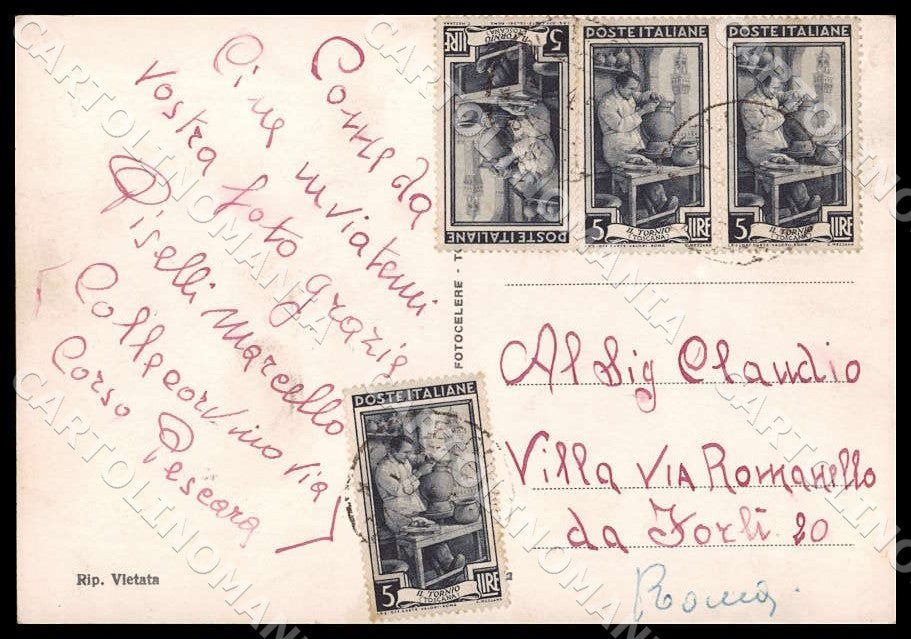 Corri da
Cine inviatemi
vostra foto grazie
Piselli Marcello
Collecorvino Via
Corso Pescara
Rip. Vietata
FOTOCELERE - TO
POSTE ITALIANE
5 LIRE
IL TORNIO
(TOSCANA)
POSTE ITALIANE
5 LIRE
IL TORNIO
(TOSCANA)
POSTE ITALIANE
5 LIRE
IL TORNIO
(TOSCANA)
POSTE ITALIANE
5 LIRE
IL TORNIO
(TOSCANA)
Al Sig Claudio
Villa VIA Romanello
da Forlì 20
Roma
CARTOLINOMANIA